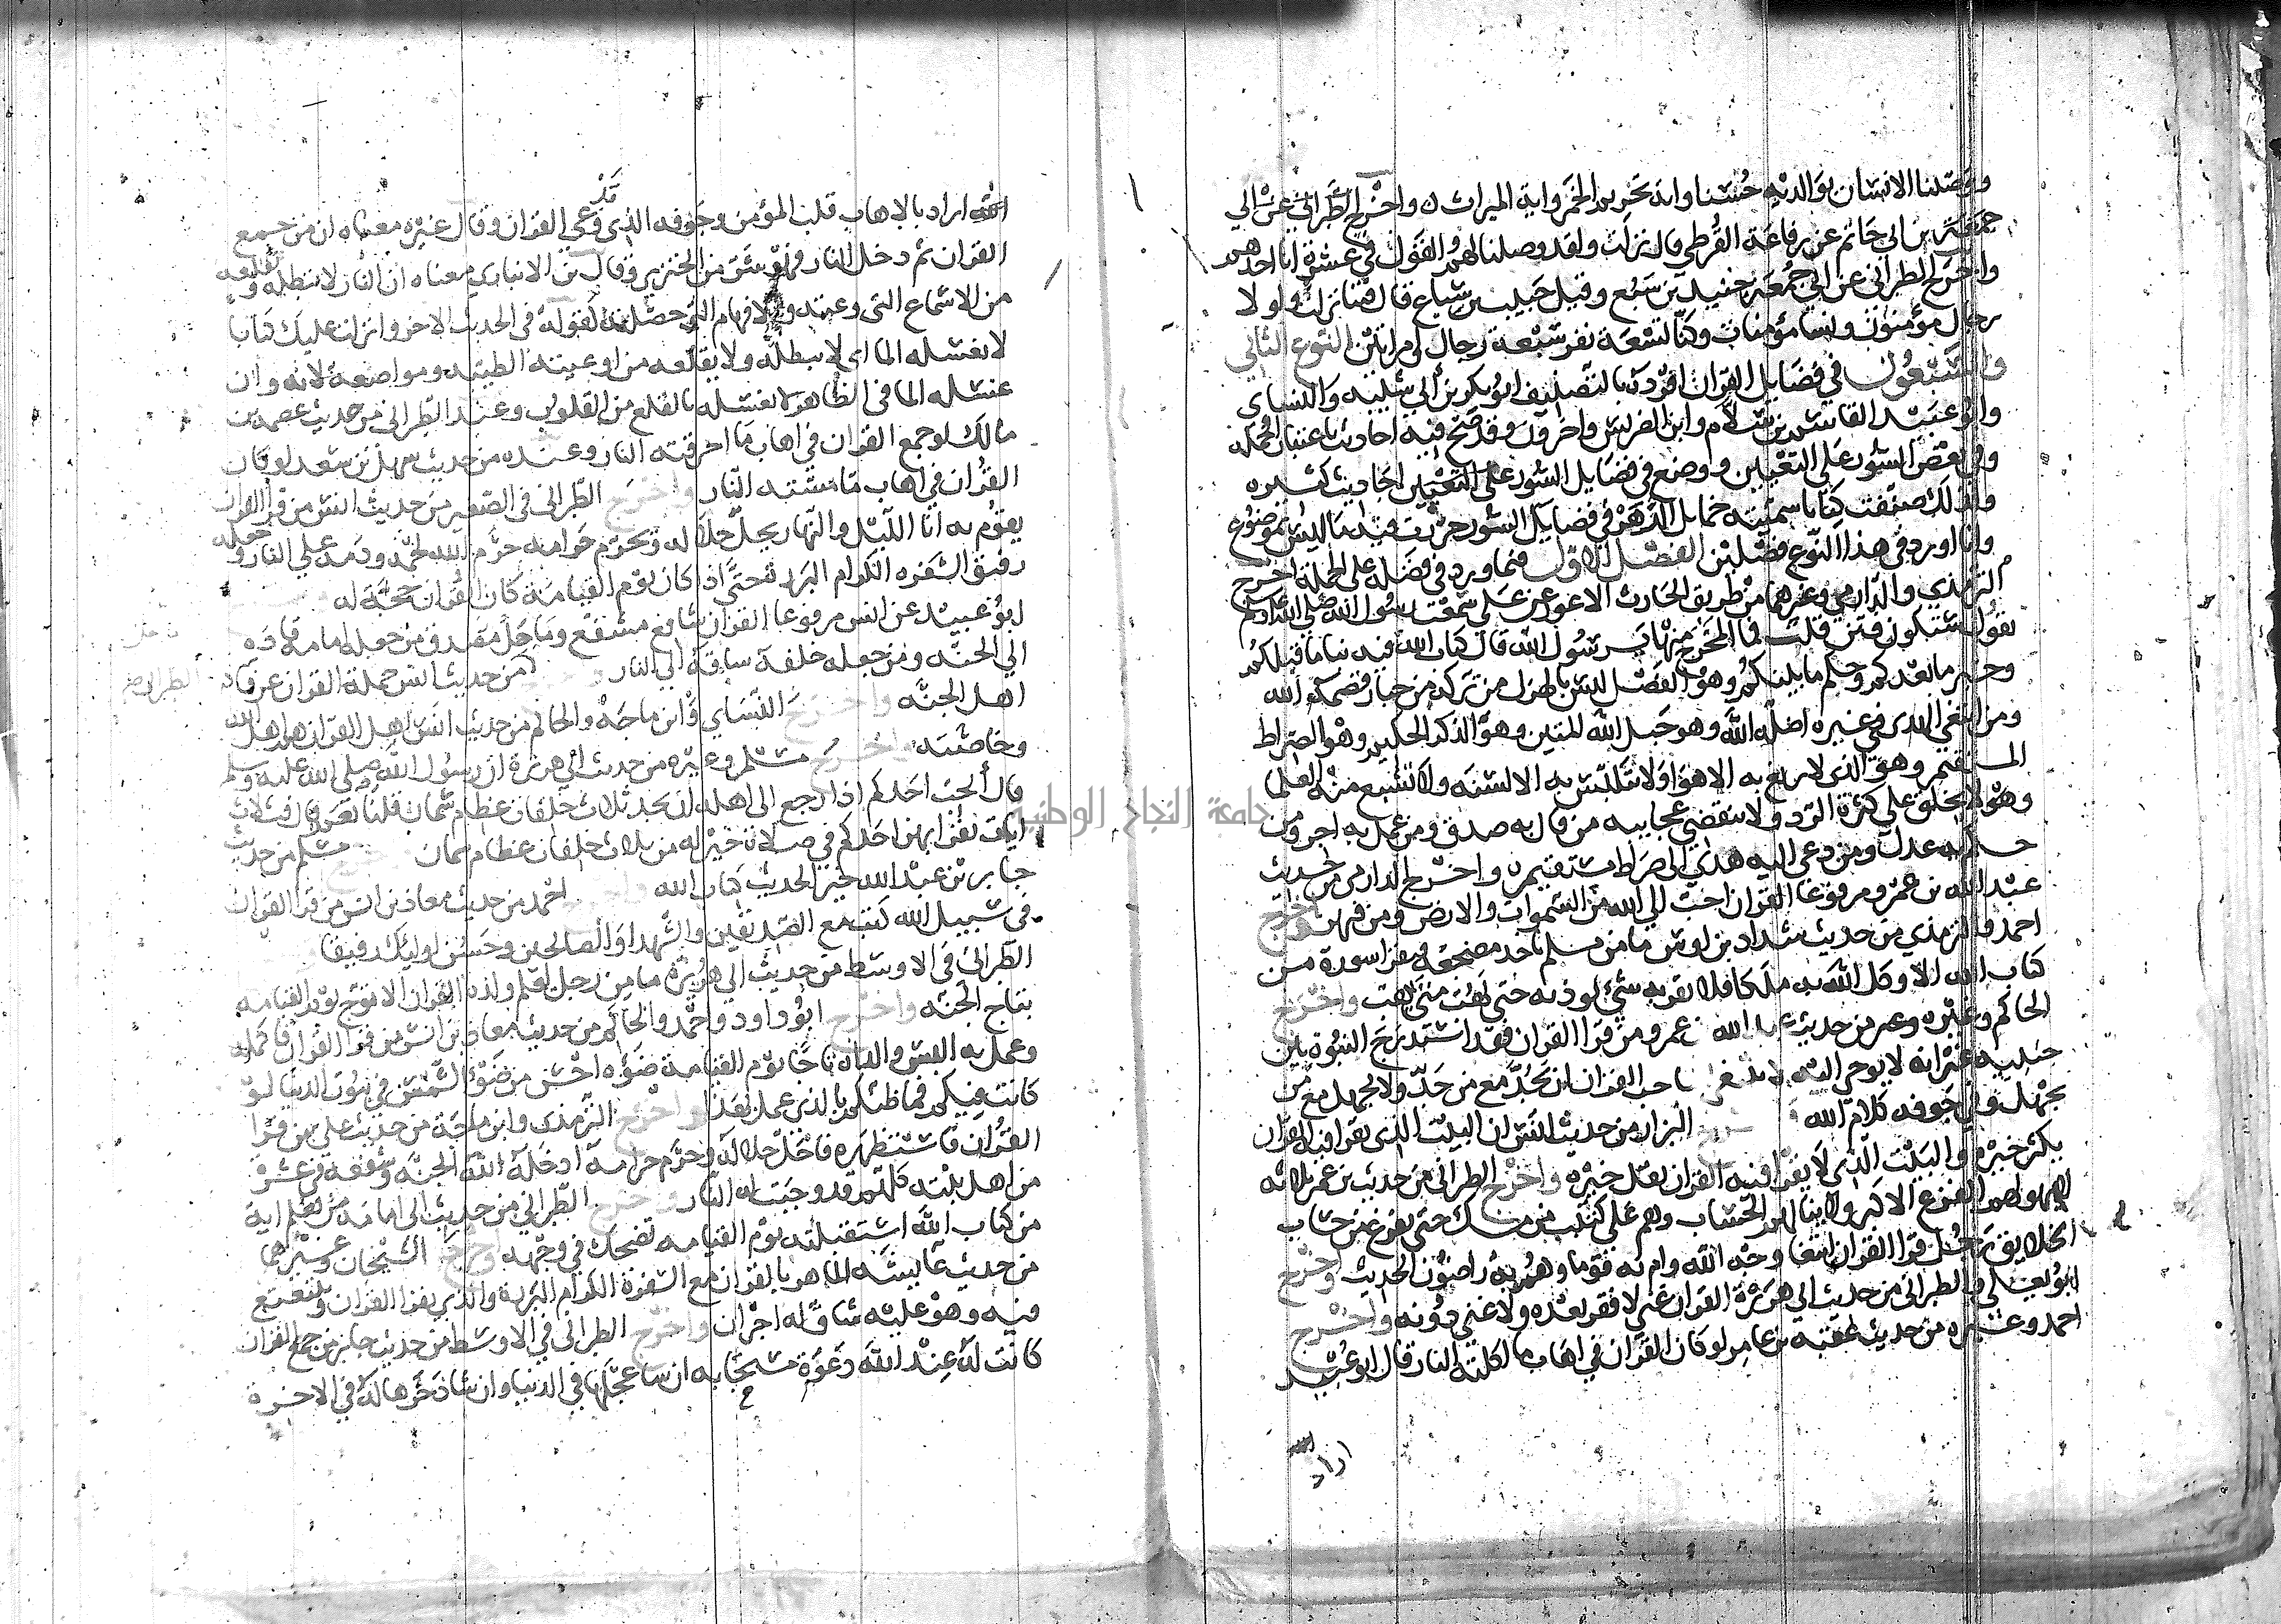 ووصينا الانسان بوالديه حسنا واية تحريم الخمر واية الميراث واخرج الطبراني عن ابي
بن ابي حاتم عن رفاعة القرظي قال نزلت ولقد وصلنا لهم القول في عشرة انا احدهم
واخرج الطبراني عن ابي جمعة جنيد بن سبع وقيل حبيب بن سباع قال فينا نزلت ولولا
رجال مؤمنون ونسا مؤمنات وكنا تسعة نفر سبعة رجال وامراتين النوع الثاني
والسبعون في فضايل القران افرده بالتصنيف ابو بكر بن ابي شيبه والنساي
وابو عبيد القاسم بن سلام وابن الضريس واخرون وقد صح فيه احاديث باعتبار الجملة
وفي بعض السور على التعيين ووضع في فضايل السور على التعيين احاديث كثيره
ولذلك صنفت كتابا سميته خمايل الزهر في فضايل السور حررت فيه ما ليس بموضوع
وانا اورد في هذا النوع فصلين الفصل الاول فيما ورد في فضله على الجملة اخرج
الترمذي والدارمي وغيرهما من طريق الحارث الاعور عن علي سمعت رسول الله صلى الله عليه وسلم
يقول ستكون فتن قلت فما المخرج منها يا رسول الله قال كتاب الله فيه نبا ما قبلكم
وخبر ما بعدكم وحكم ما بينكم وهو الفصل ليس بالهزل من تركه من جبار قصمه الله
ومن ابتغى الهدى في غيره اضله الله وهو حبل الله المتين وهو الذكر الحكيم وهو الصراط
المستقيم وهو الذي لا يزيغ به الاهوا ولا تلتبس به الالسنه ولا تشبع منه العلما
وهو لا يخلق على كثرة الرد ولا تنقضي عجايبه من قال به صدق ومن عمل به اجر ومن
حكم به عدل ومن دعى اليه هدى الى صراط مستقيم واخرج الدارمي من حديث
عبد الله بن عمرو مرفوعا القران احب الى الله من السموات والارض ومن فيهن واخرج
احمد والترمذي من حديث شداد بن اوس ما من مسلم ياخذ مضجعه فيقرا سورة من
كتاب الله الا وكل الله به ملكا فلا يقربه شي يوذيه حتى يهب متى يهب واخرج
الحاكم وغيره من حديث عبد الله بن عمرو من قرا القران فقد استدرج النبوة بين
جنبيه غير انه لا يوحى اليه لا ينبغي لصاحب القران ان يجد مع من جد ولا يجهل مع من
يجهل وفي جوفه كلام الله واخرج البزار من حديث انس ان البيت الذي يقرا فيه القران
يكثر خيره والبيت الذي لا يقرا فيه القران يقل خيره واخرج الطبراني من حديث بن عمر ثلاثه
لا يهولهم الفزع الاكبر ولا ينالهم الحساب وهم على كثيب من مسك حتى يفرغ من حساب
الخلايق رجل قرا القران ابتغا وجه الله وام به قوما وهم به راضون الحديث واخرج
ابو يعلى والطبراني من حديث ابي هريرة القران غنى لا فقر بعده ولا غنى دونه واخرج
احمد وغيره من حديث عقبه بن عامر لو كان القران في اهاب ما اكلته النار قال ابو عبيد
اراد
اراد بالاهاب قلب المؤمن وجوفه الذي قد وعى القران وقال غيره معناه ان من جمع
القران ثم دخل النار فهو شر من الخنزير وقال بن الانباري معناه ان النار لا تبطله ولا تقلعه
من الاسماع التي وعته والافهام التي حصلته كقوله في الحديث الاخر وانزلت عليك كتابا
لا يغسله الما اي لا يبطله ولا يقلعه من اوعيته الطيبه ومواضعه لانه وان
غسله الما في الظاهر لا يغسله بالقلع من القلوب وعند الطبراني من حديث عصمه بن
مالك لو جمع القران في اهاب ما احرقته النار وعنده من حديث سهل بن سعد لو كان
القران في اهاب ما مسته النار واخرج الطبراني في الصغير من حديث انس من قرا القران
يقوم به انا الليل والنهار يحل حلاله ويحرم حرامه حرم الله لحمه ودمه على النار وجعله
رفيق السفره الكرام البرره حتى اذا كان يوم القيامة كان القران حجة له
ابو عبيد عن انس مرفوعا القران شافع مشفع وماحل مصدق من جعله امامه قاده
الى الجنه ومن جعله خلفه ساقه الى النار من حديث انس حملة القران عرفا
اهل الجنه واخرج النساي وابن ماجه والحاكم من حديث انس اهل القران هم اهل الله
وخاصته واخرج مسلم وغيره من حديث ابي هريرة ان رسول الله صلى الله عليه وسلم
قال ايحب احدكم اذا رجع الى اهله ان يجد ثلاث خلفات عظام سمان قلنا نعم قال فثلاث
ايات يقرا بهن احدكم في صلاته خير له من ثلاث خلفات عظام سمان واخرج مسلم من حديث
جابر بن عبد الله خير الحديث كتاب الله واخرج احمد من حديث معاذ بن انس من قرا القران
في سبيل الله كتب مع الصديقين والشهدا والصالحين وحسن اوليك رفيقا
الطبراني في الاوسط من حديث ابي هريرة ما من رجل يعلم ولده القران الا توج يوم القيامه
بتاج الجنه واخرج ابو داود واحمد والحاكم من حديث معاذ بن انس من قرا القران فاكمله
وعمل به البس والداه تاجا يوم القيامة ضوه احسن من ضو الشمس في بيوت الدنيا لو
كانت فيكم فما ظنكم بالذي عمل بهذا واخرج الترمذي وابن ماجة من حديث علي من قرا
القران فاستظهره فاحل حلاله وحرم حرامه ادخله الله الجنه وشفعه في عشرة
من اهل بيته كلهم قد وجبت له النار واخرج الطبراني من حديث ابي امامه من تعلم اية
من كتاب الله استقبلته يوم القيامه تضحك في وجهه واخرج الشيخان وغيرهما
من حديث عايشه الماهر بالقران مع السفرة الكرام البررة والذي يقرا القران ويتتعتع
فيه وهو عليه شاق له اجران واخرج الطبراني في الاوسط من حديث جابر من جمع القران
كانت له عند الله دعوة مستجابه ان شا عجلها في الدنيا وان شا ذخرها له في الاخرة
جامعة النجاح الوطنية